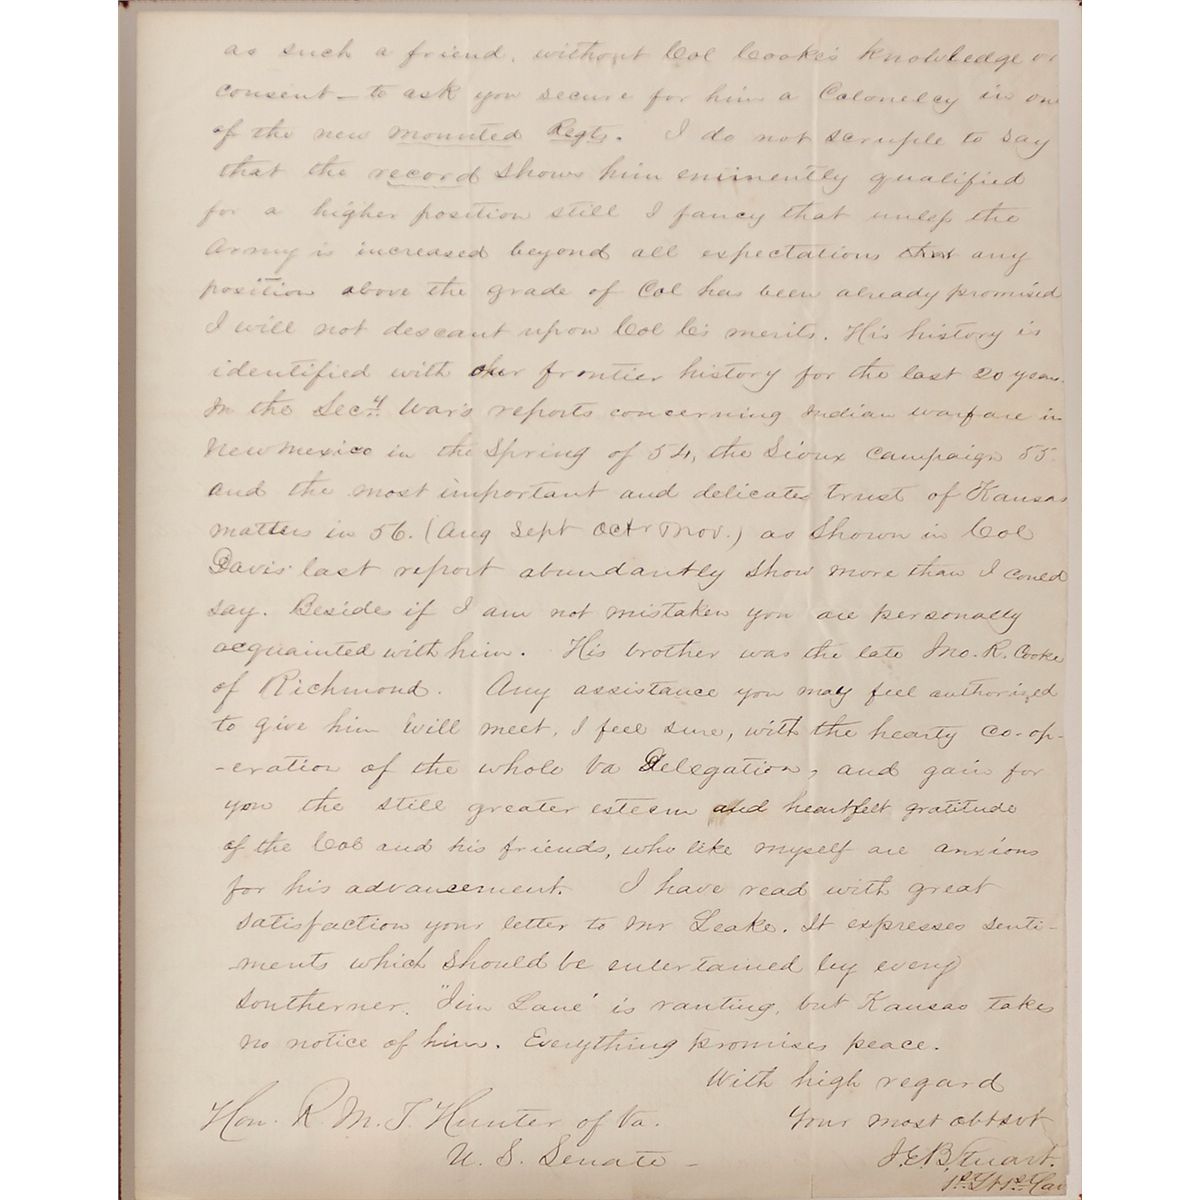 as such a friend, without Col Cooke's knowledge or
consent – to ask you secure for him a Colonelcy in one
of the new mounted Regts. I do not scruple to say
that the record shows him eminently qualified
for a higher position still I fancy that unless the
Army is increased beyond all expectations that any
position above the grade of Col has been already promised
I will not descant upon Col C's merits. His history is
identified with our frontier history for the last 20 years.
In the Secy. War's reports concerning Indian warfare in
New Mexico in the Spring of 54, the Sioux Campaign 55
and the most important and delicate trust of Kansas
matters in 56. (Aug Sept Oct & Nov.) as shown in Col
Davis' last report abundantly show more than I could
say. Besides if I am not mistaken you are personally
acquainted with him. His brother was the late Jno. R. Cooke
of Richmond. Any assistance you may feel authorized
to give him will meet, I feel sure, with the hearty co-op-
-eration of the whole Va Delegation, and gain for
you the still greater esteem and heartfelt gratitude
of the Col and his friends, who like myself are anxious
for his advancement. I have read with great
satisfaction your letter to Mr Leake. It expresses senti-
-ments which should be entertained by every
southerner. "Jim Lane' is ranting, but Kansas takes
no notice of him. Everything promises peace.
With high regard
Your most obt svt
J.E.B. Stuart.
1st Lt 1st Cav
Hon. R. M. T. Hunter of Va.
U. S. Senate –